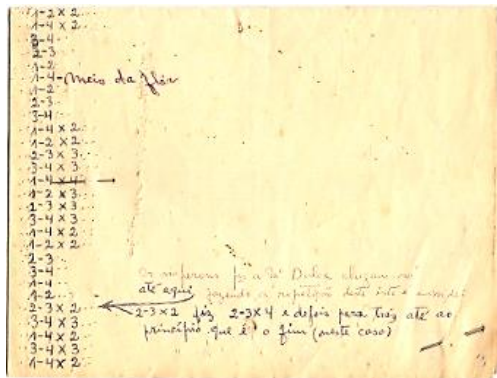 1-2 x 2
1-4 x 2
3-4
2-3
1-2
1-4 - meio da flôr
1-2
2-3
3-4
1-4 x 2
1-2 x 2
2-3 x 3
3-4 x 3
1-4 x 4
1-2 x 3
2-3 x 3
3-4 x 3
1-4 x 2
1-2 x 2
2-3
3-4
1-4
1-2
2-3 x 2
3-4 x 3
1-4 x 2
1-2 x 2
3-4 x 3
1-4 x 2
a Sª Dulce
até aqui, fazendo a repetição deste isto é
2-3x2 fiz 2-3x4 e depois para trás até ao
princípio, que é o fim (neste caso)